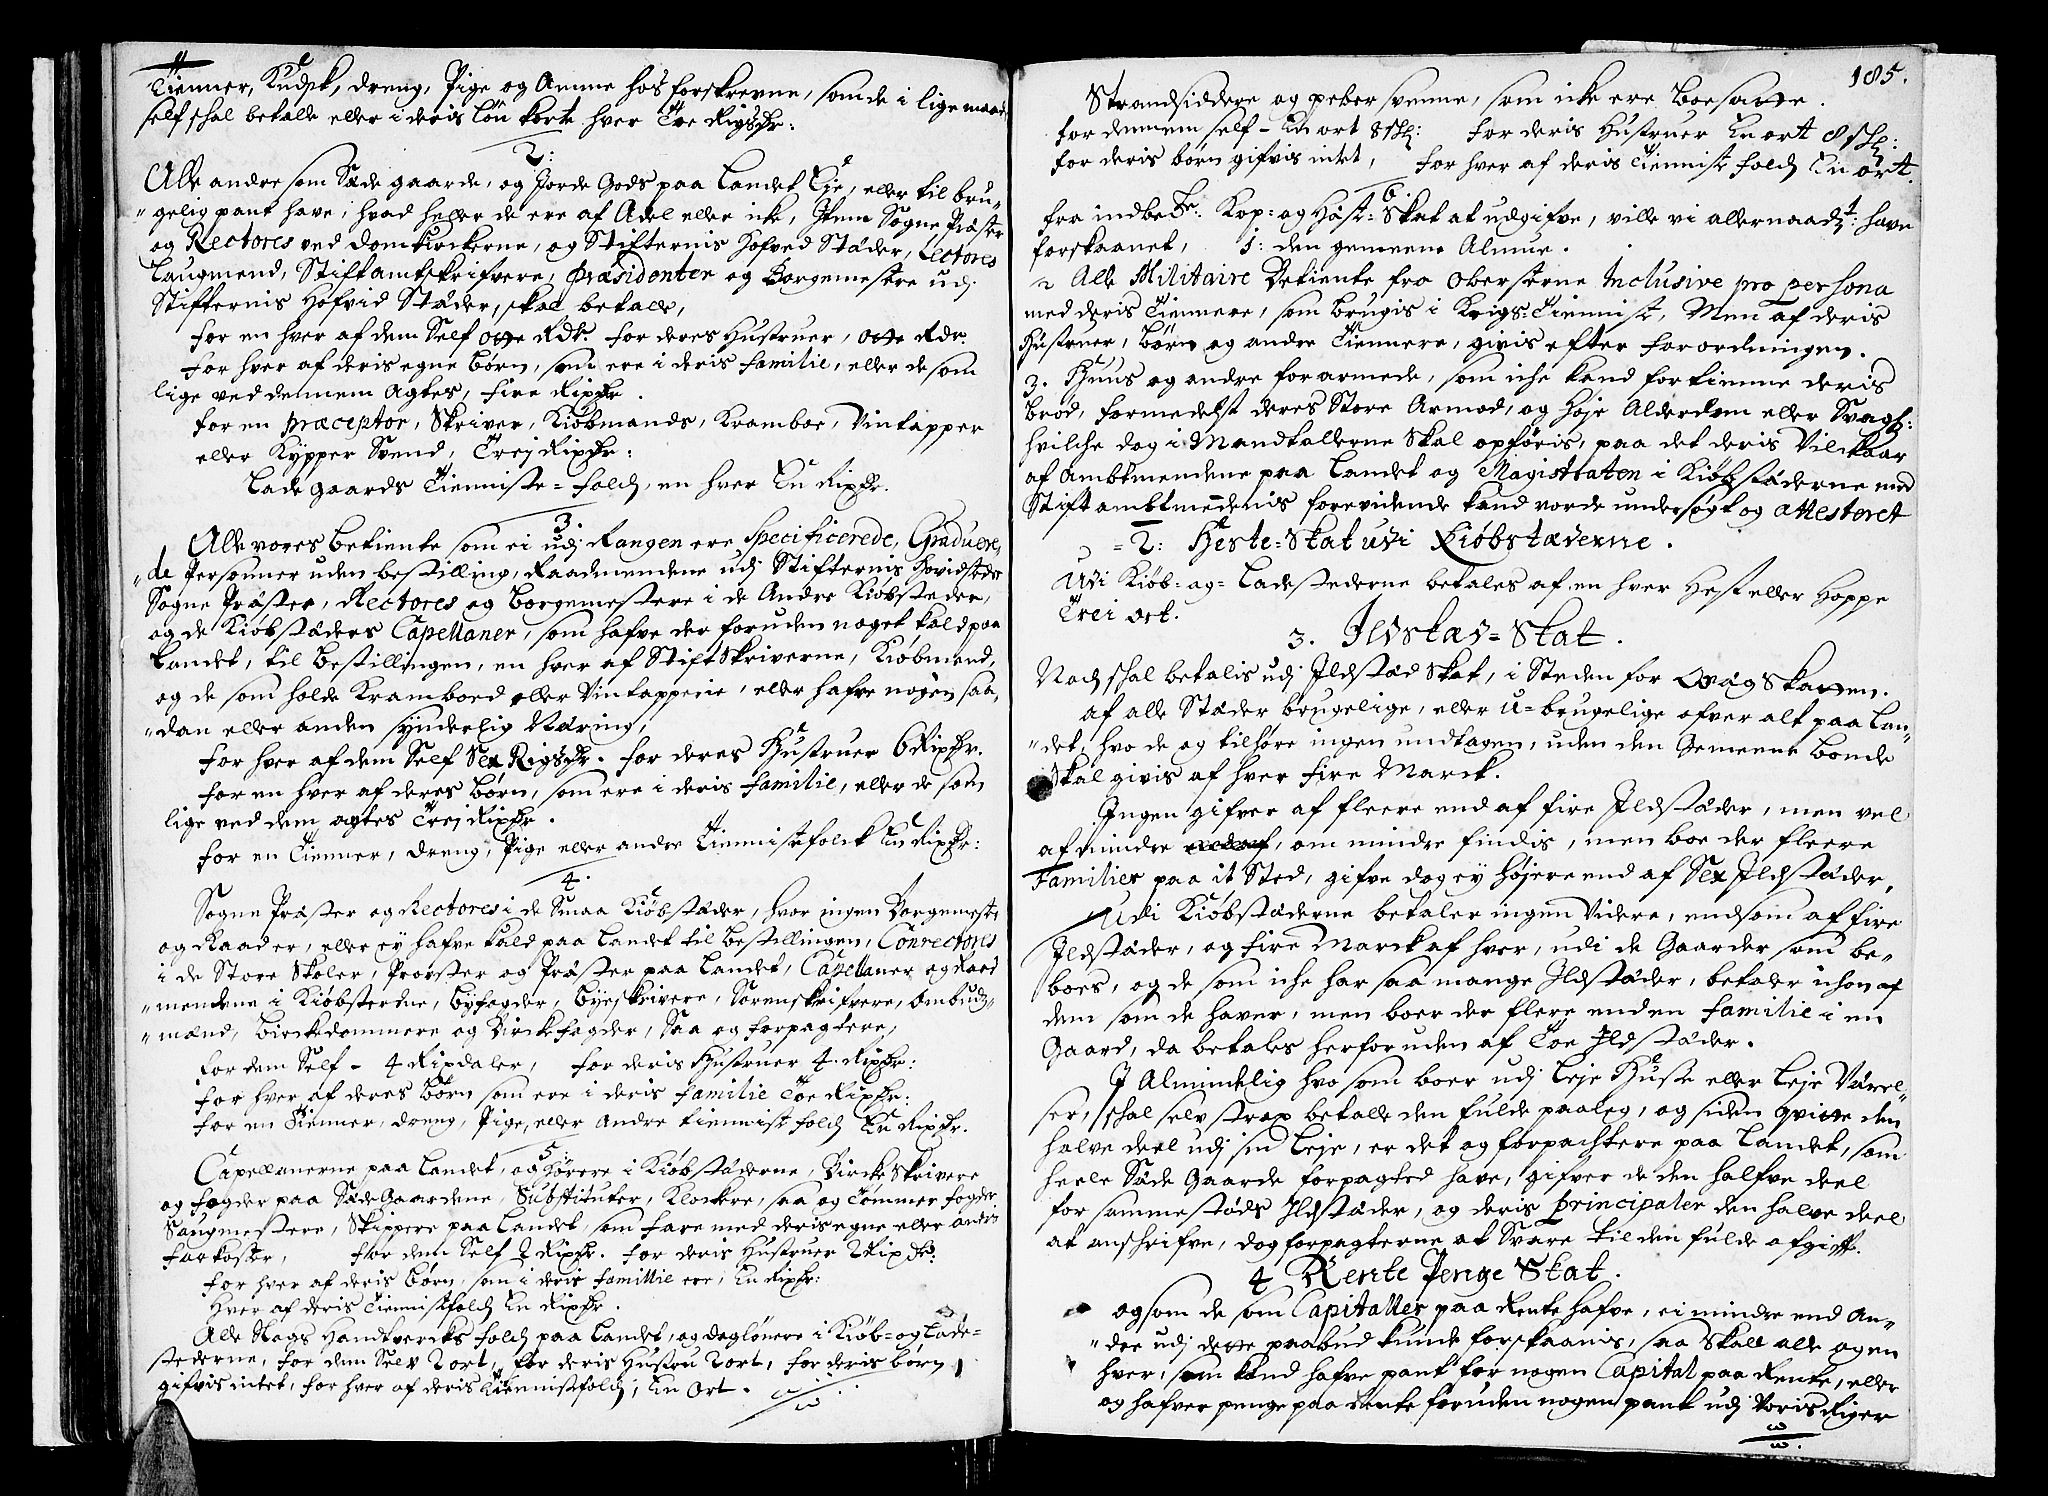 Tienner, Kudsk, dreng, Pige og Amme hos forskrevne, som de i lige maade
self schal betalle eller i deris løn korte hver Toe Rigsdr:
2:
Alle andre som Sæde gaarde, og Jorde Gods paa Landet Eje, eller til bru-
"gelig pant have, hvad heller de ere af Adel eller icke, Item Sogne Præster
og Rectores ved domkirckerne, og Stifternis Hofved Stæder, Lectores
Laugmend, Stiftamtskrifvere, Præsidenter og Borgemestere udj
Stifternis Hofvid Stæder, skal betale,
for en hver af dem Self Otte Rdr. for deres Hustruer, Otte Rdr.
for hver af deris egne Børn, som ere i deris familie, eller de som
lige ved dennem Agtes, fire Rixdr.
for en Præceptor, Skriver, Kiøbmands, Kramboe, Vintapper
eller Kypper Svend, Trej Rixdr:
Lade gaards Tienniste-folch, en hver En Rixdr.
3.
Alle vores betiente som ei udj Rangen ere Specificerede, Graduere,
"de Personner uden bestilling, Raadmendene udj Stifternis Hovidstæder
Sogne Præster, Rectores og Borgemestere i de Andre Kiøbsteder,
og de Kiøbstæders Capellaner, som hafve der foruden noget kald paa
Landet, til bestillingen, en hver af StiftSkriverne, Kiøbmend,
og de som holde Kramboed eller Vintapperie, eller hafve nogen saa,
"dan eller anden synderlig Næring,
for hver af dem Self Sex Rigsdr. for deres Hustruer 6 Rixdr.
for en hver af deres Børn, som ere i deris familie, eller de som
lige ved dem agtes Trej Rixdr.
for en Tienner, dreng, Pige eller andre Tiennistefolck En Rixdr:
4.
Sogne Præster og Rectores i de Smaa Kiøbstæder, hvor ingen Borgemester
og Raad er, eller ey hafve kald paa Landet til bestillingen, Conrectores
i de Store Skoler, Provster og Præster paa Landet, Capellaner og Raad
"mendene i Kiøbstedrne, byfogder, byeskrivere, Sorenskrifvere, Ombuds-
"mænd, Birckedommere og Birckefogder, Saa og forpagtere,
for dem Self - 4 Rixdaler, for deris Hustruer 4. Rixdr:
for hver af deres Børn som ere i deris familie Toe Rixdr:
for en Tienner, dreng, Pige, eller Andre tiennist folch En Rixdr.
5.
Capellanerne paa Landet, og Hørere i Kiøbstæderne, BirckeSkrivere
og fogder paa SædeGaardene, Substituter, Klockere, saa og Tømmer fogder
Saugmestere, Skippere paa Landet, som fare med deris egne eller andris
farkoster, for dem Self 2 Rixdr. for deris Hustruer 2 Rixdr:
for hver af deris Børn, som i deris famillie ere, En Rixdr:
Hver af deris Tiennistfolch En Rixdr.
Alle Slags Handtvercks folch paa Landet, og daglønere i Kiøb- og Lade-
stederne, for dem Selv 2 ort, for deris Hustru 2 ort, for deris børn
gifvis intet, for hver af deris Tiennistfolch, En Ort.
185.
Strandsiddere og pebersvenne, som icke ere Boesatte.
for dennem self - En ort 8 sh: for deris Hustruer En ort 8 sh:
for deris børn gifvis intet, for hver af deris Tienniste folch En ort.
6.
fra indbete: Kop= og Hæst-Skat at udgifve, ville vi allernaadt: have
forskaanet, 1: den gemeene Almue.
2 Alle Militaire Betiente fra Obersterne Inclusive pro persona
med deris Tiennere, som brugis i Krigs-Tiennist, Men af deris
Hustruer, Børn og andre Tiennere, givis efter forordningen.
3. Huus og andre forarmede, som iche kand fortienne deris
brød, formedelst deres Store Armod, og høje Alderdom eller Svagh:
hvilche dog i Mandtallerne Skal opføris, paa det deris Vilckaar
af Ambtmendene paa Landet og Magistraten i Kiøbstæderne med
Stiftambtmedenis forevidende kand vorde undersøgt og attesteret
2: Heste-Skat udi Kiøbstæderne.
Udi Kiøb- og Ladestederne betales af en hver Hest eller Hoppe
Trei ort.
3. Ildstæd-Skat.
Nock shal betalis udj Ildstæd Skat, i Steden for QvægSkatten.
af alle Stæder brugelige, eller u-brugelige ofver alt paa Lan-
"det, hvo de og tilhøre ingen undtagen, uden den Gemeene bonde
Skal givis af hver fire Marck.
Ingen gifver af fleere end af fire Ildstæder, men vel
af mindre, om mindre findis, men boe der fleere
familier paa it Sted, gifve dog ey højere end af Sex Ildstæder,
Udi Kiøbstæderne betaler ingen Videre, end som af fire
Ildstæder, og fire Marck af hver, udi de Gaarder som be-
boes, og de som iche har saa mange Ildstæder, betaler ichon af
dem som de haver, men boer der flere end en familie i en
Gaard, da betales herforuden af Toe Ildstæder.
I Almindelig hvo som boer udj Leje Huse eller Leje Værel-
ser, schal selv strax betalle den fulde paaleg, og siden qvitte den
halve deel udj sin Leje, er det og forpachtere paa Landet, som
heele Sæde Gaarde forpagted have, gifver de den halfve deel
for sammestæds Ildstæder, og deris Principaler den halve deel
at anschrifve, dog forpagterne at Svare til den fulde afgift.
4 Rente Penge Skat.
og som de som Capitaller paa Rente hafve, ei mindre end An-
"dre udj dette paabud kunde forskaanis, saa Skall alle og en
hver, som kand hafve pant for nogen Capital paa Rente, eller
og hafver penge paa Rente foruden nogen pant udj Voris Riger